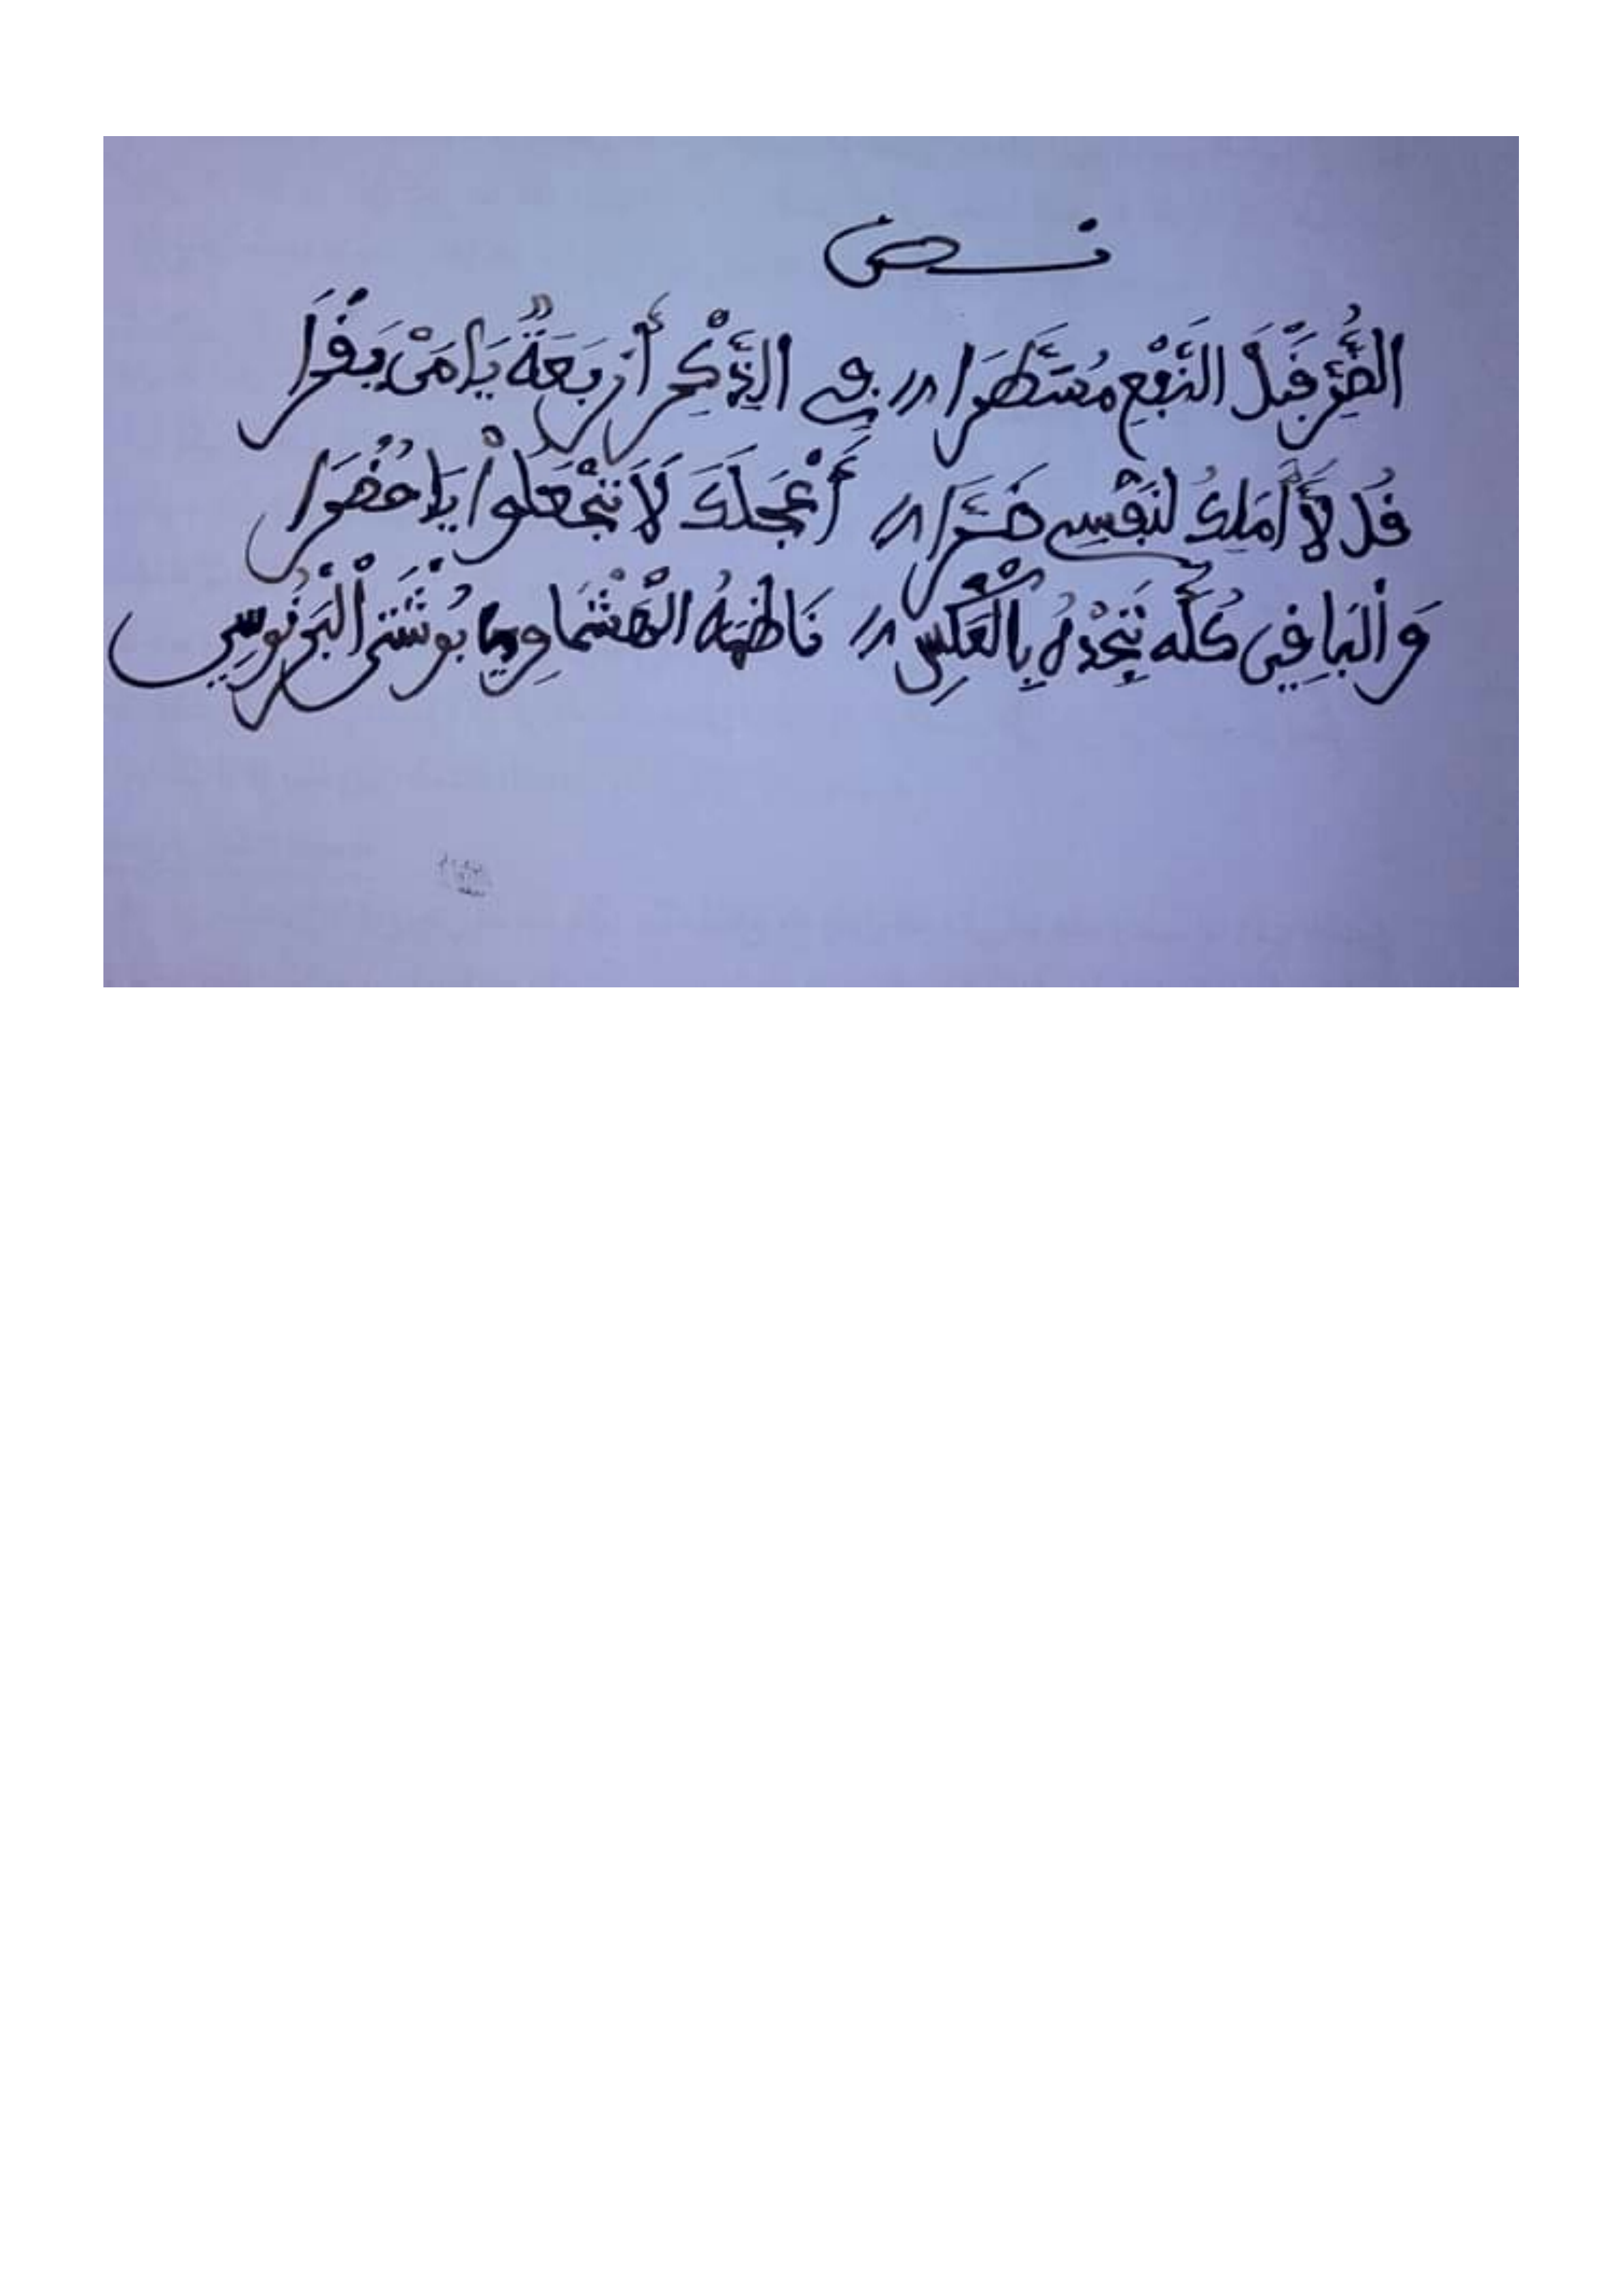 نص
الضُّرُّ قَبْلَ النَّفْعِ مُسَتَّطَرَا // فِي الذِّكْرِ أَرْبَعَةٌ يَا مَنْ يَقْرَا
قُل لَّا أَمْلِكُ لِنَفْسِي ضَرَّا // أَعْجَلَكَ لَا تَجْعَلُوا يَا حُضَرَا
وَالْبَاقِي كُلُّه تَجِدْهُ بِالْعَكْسِ // نَاظِمُهُ الْهَشْمَاوِي بُوشْتَى الْبَرْنُوسِي